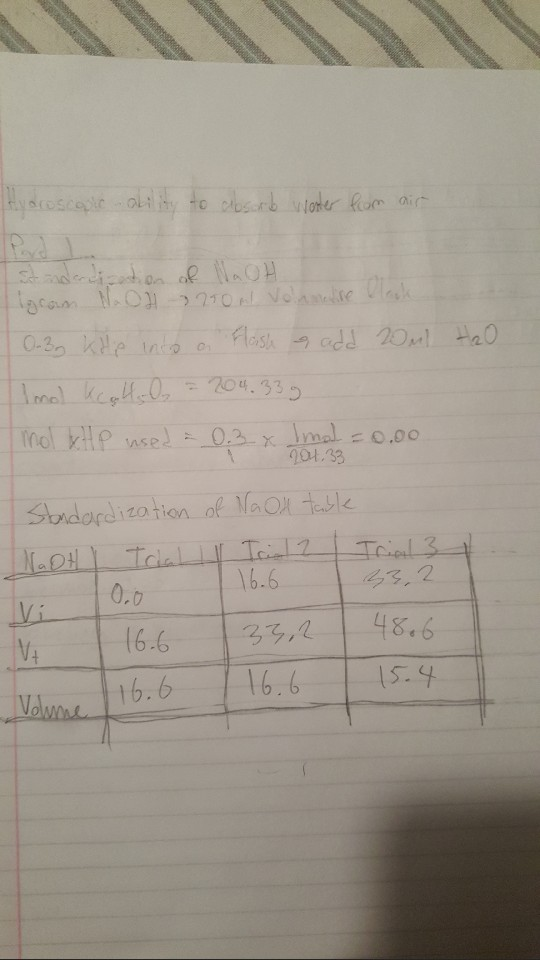 Hydroscopic - ability to absorb water from air
Part 1
Standardization of NaOH
1gram NaOH → 250 ml Volumetric Flask
0.3g KHP into a Flask → add 20ml H2O
1mol KC8H5O2 = 204.33g
mol KHP used = 0.3/1 x 1mol/204.33 = 0.00
Standardization of NaOH table
NaOH Trial 1 Trial 2 Trial 3
Vi 0.0 16.6 33.2
Vf 16.6 33.2 48.6
Volume 16.6 16.6 15.4